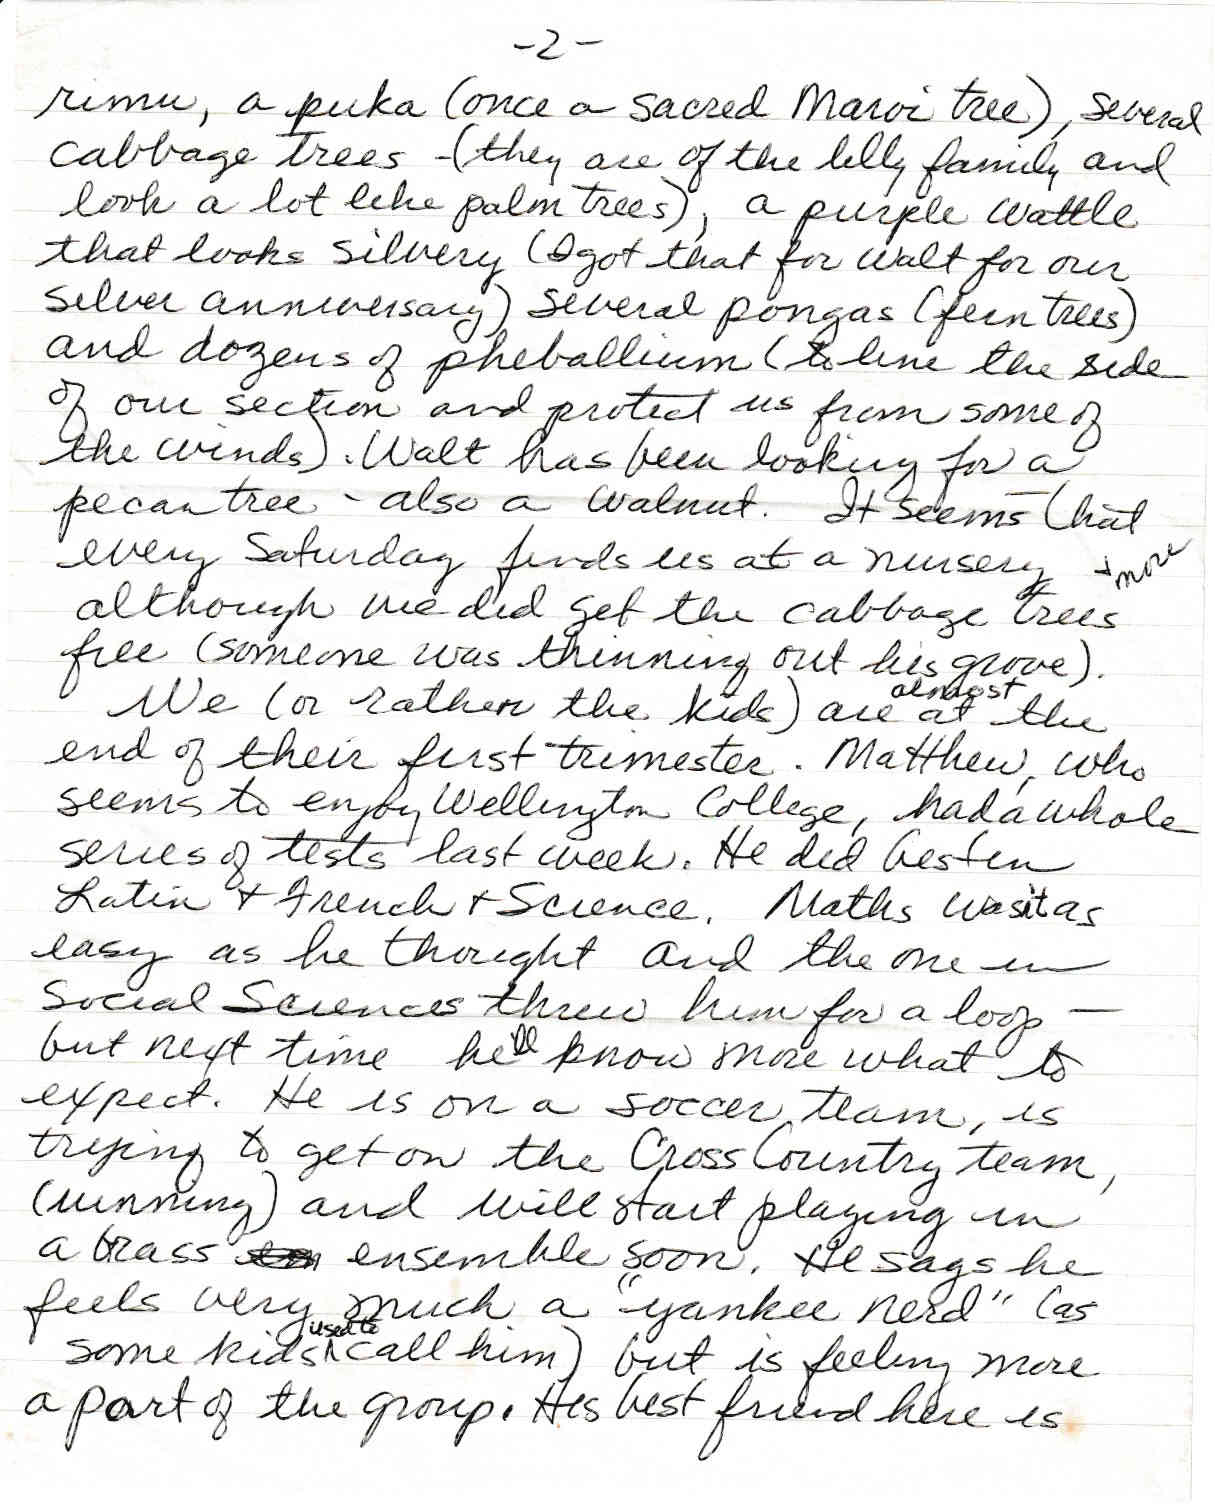 -2-
rimu, a puka (once a sacred Maroi tree), several
cabbage trees - (they are of the lilly family and
look a lot like palm trees), a purple wattle
that looks silvery (I got that for Walt for our
silver anniversary) several pongas (fern trees)
and dozens of pheballium (to line the side
of our section and protect us from some of
the winds). Walt has been looking for a
pecan tree - also a walnut. It seems that
every Saturday finds us at a nursery + more
although we did get the cabbage trees
free (someone was thinning out his grove).
We (or rather the kids) are almost at the
end of their first trimester. Matthew, who
seems to enjoy Wellington College, had a whole
series of tests last week. He did best in
Latin + French + Science. Maths wasn't as
easy as he thought and the one in
Social Sciences threw him for a loop -
but next time he'll know more what to
expect. He is on a soccer team, is
trying to get on the Cross Country team,
(running) and will start playing in
a brass ensemble soon. He says he
feels very much a "yankee nerd" (as
some kids used to call him) but is feeling more
a part of the group. His best friend here is